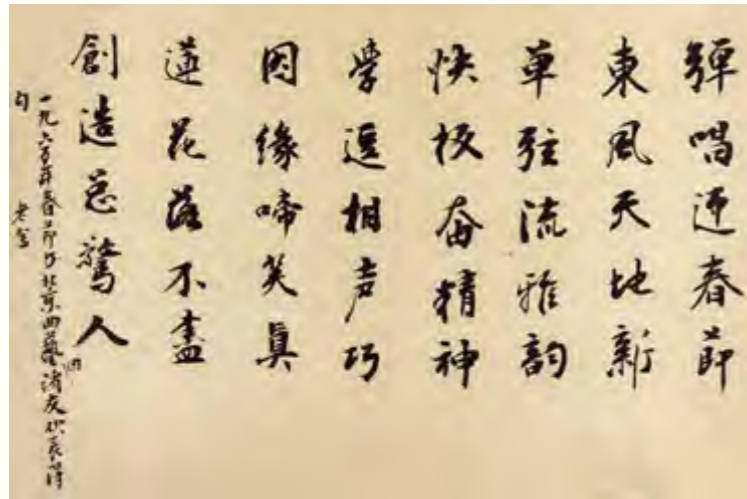 彈唱迎春節
東風天地新
单弦流雅韵
快板奋精神
学逗相声巧
因緣啼笑真
蓮花落不盡
創造总驚人
一九六五年春節 北京曲藝諸友
句 老舍